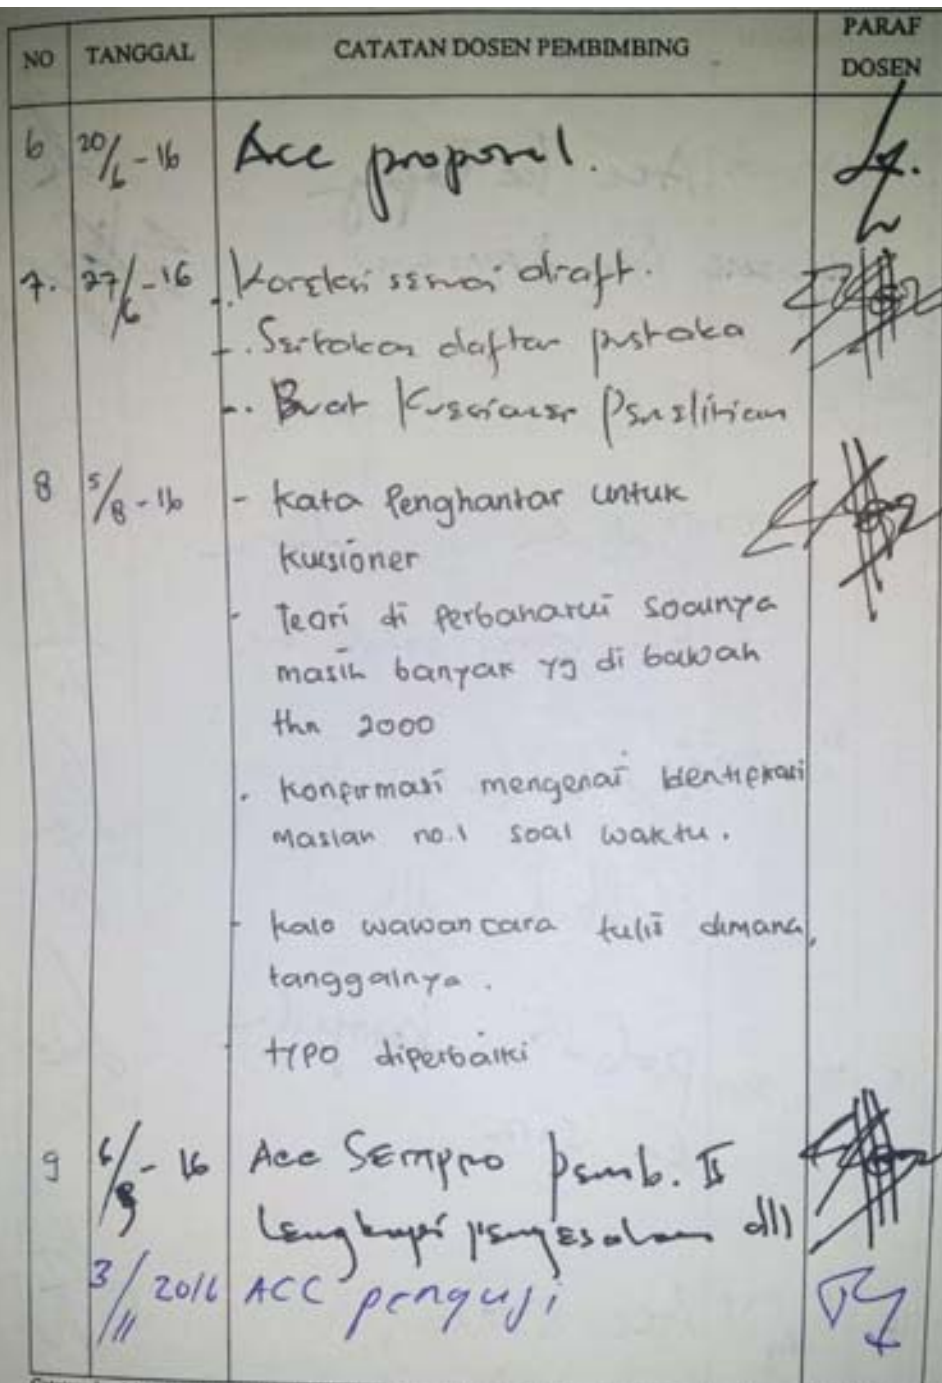 NO TANGGAL CATATAN DOSEN PEMBIMBING PARAF DOSEN
6 20/6 - 16 Acc proposal.
7. 27/6 - 16 Koreksi sesuai draft.
-. Sertakan daftar pustaka
-. Buat Kuesioner Penelitian
8 5/8 - 16 - Kata Penghantar untuk
Kuesioner
- Teori di Perbaharui soalnya
masih banyak yg di bawah
thn 2000
. Konfirmasi mengenai Identifikasi
Maslah no.1 soal waktu.
- kalo wawancara tulis dimana,
tanggalnya.
- typo diperbaiki
9 6/8 - 16 Acc SEMPRO Pemb. II
Lengkapi pengesahan dll
3/11 2016 ACC penguji